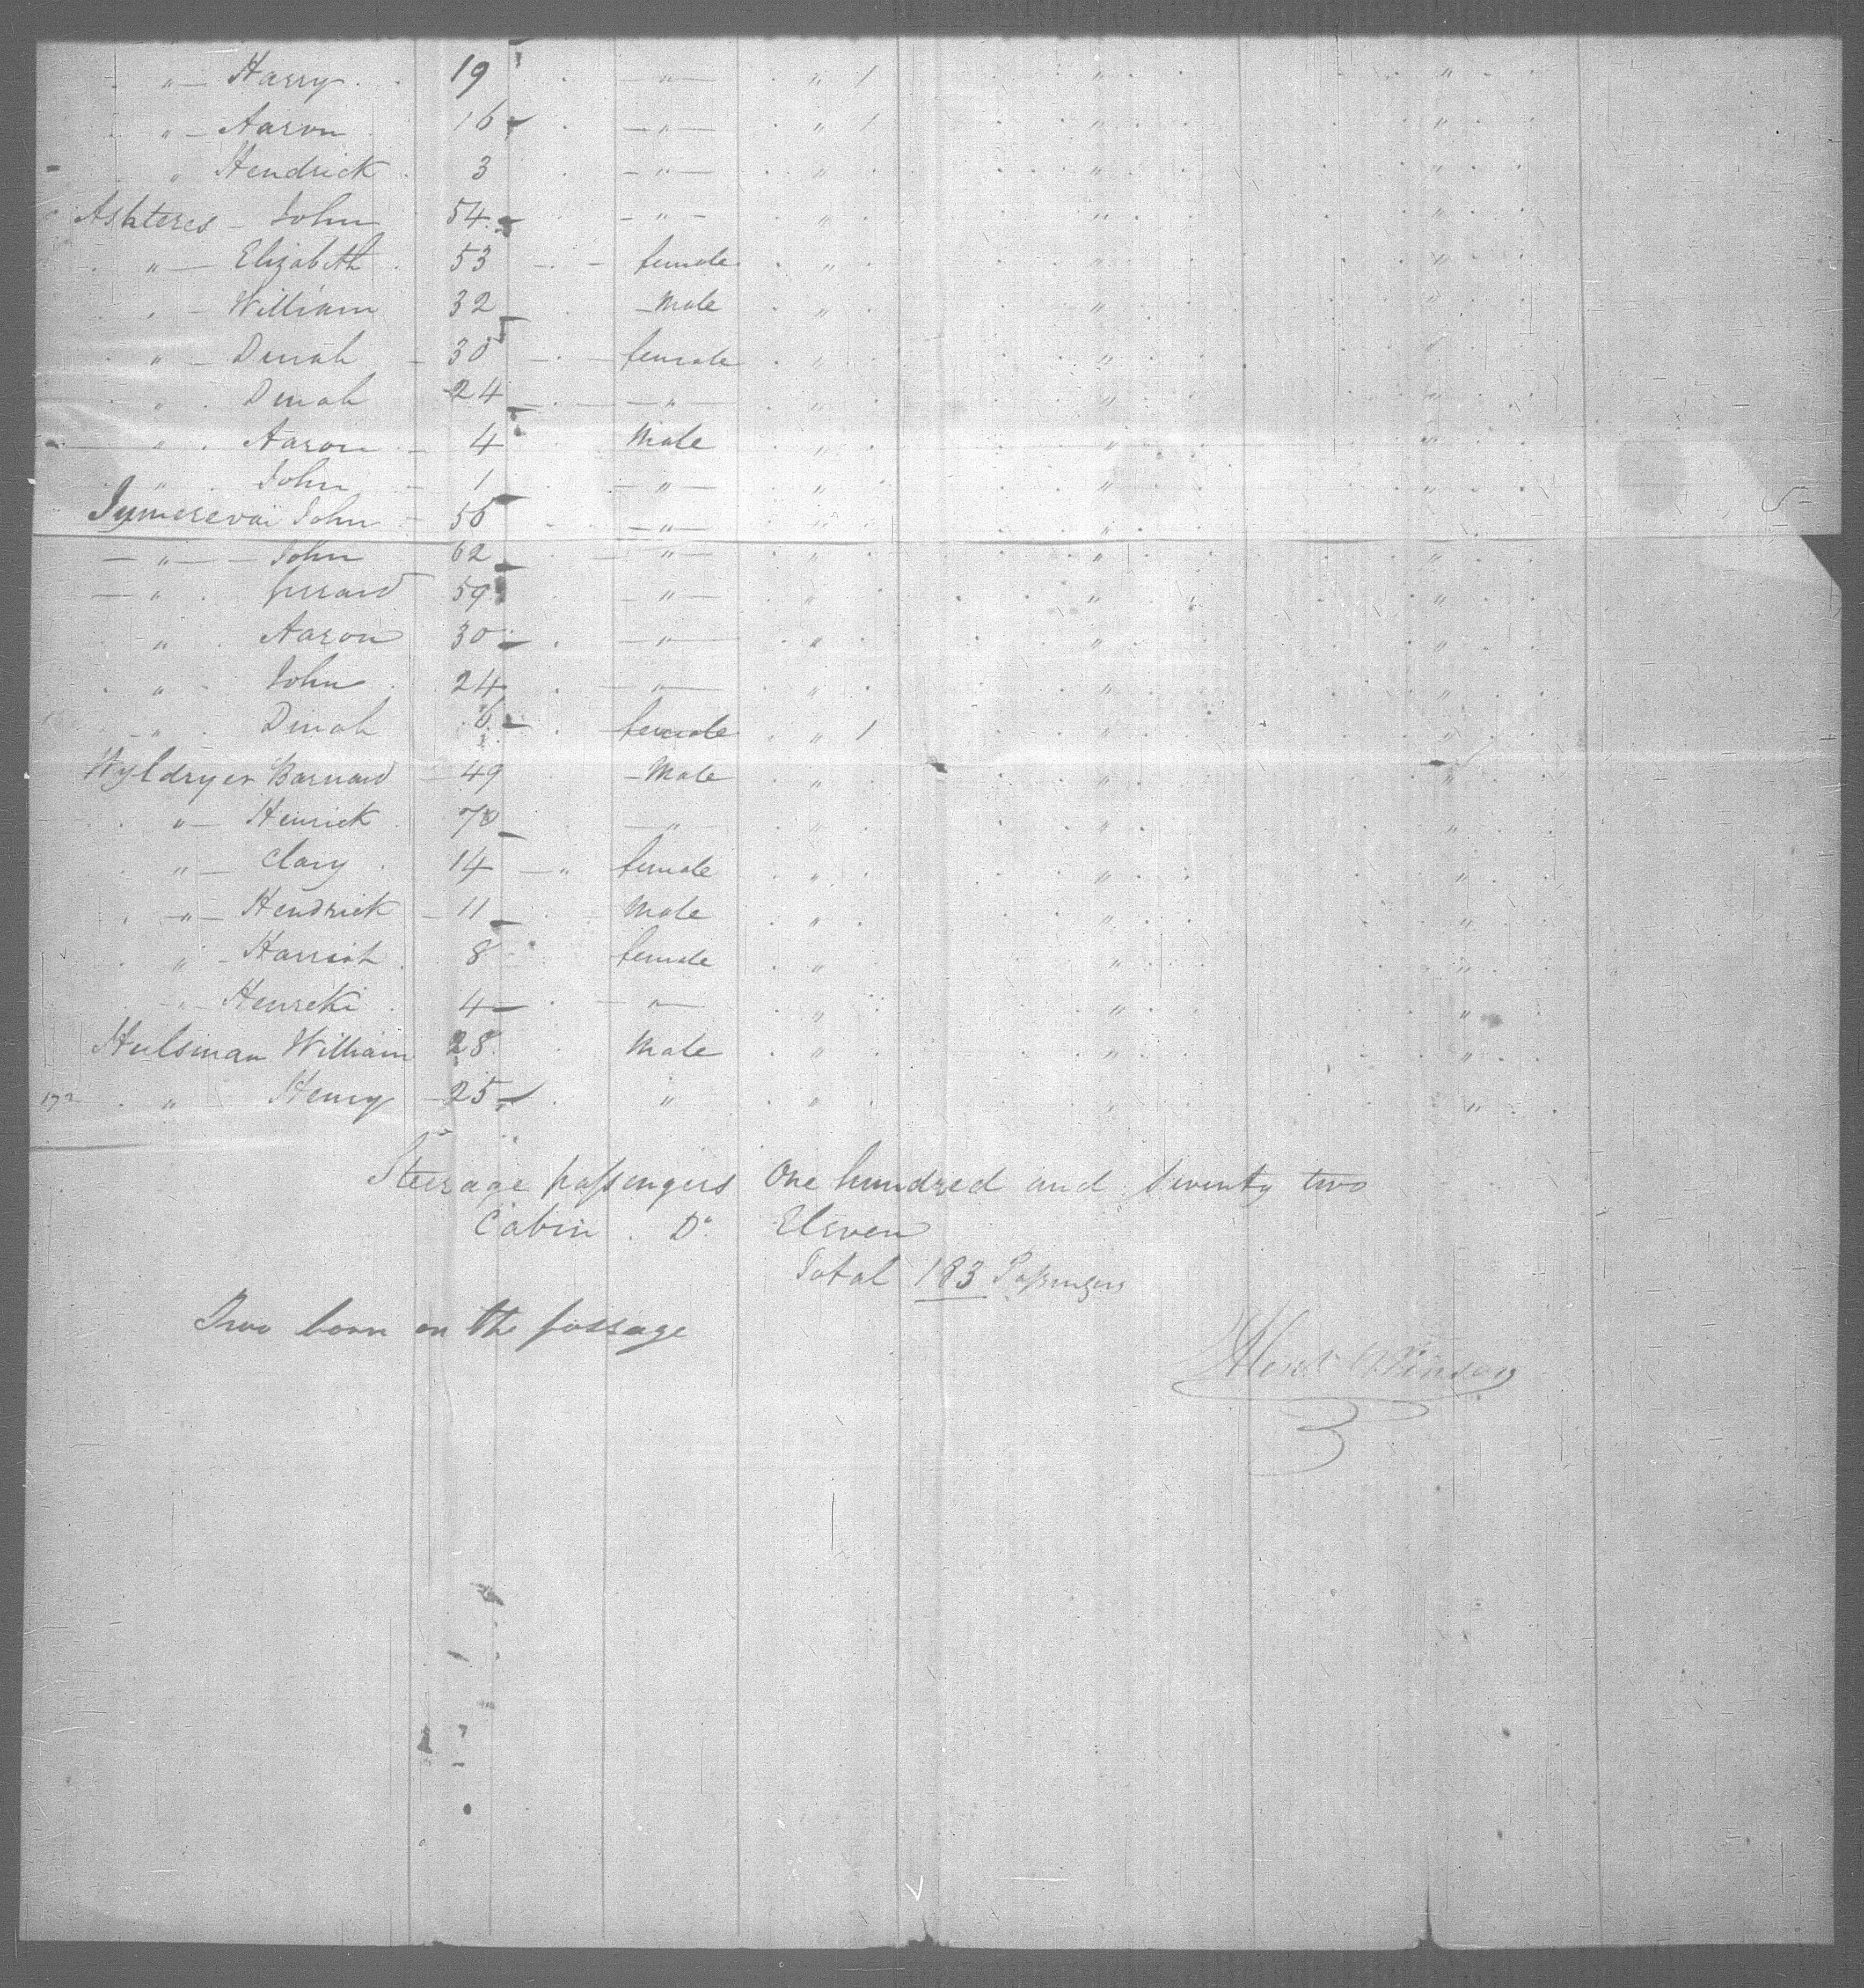 " — Harry 19 — " — " / " "
" — Aaron 16 — " — " / " "
" Hendrick 3 — " — " " "
Ashteres — John 54 — " — " " "
" — Elizabeth 53 female " " "
" — William 32 Male " " "
" — Dinah 30 female " " "
" Dinah 24 — " — " " "
" Aaron 4 Male " " "
" John 1 — " — " " "
John 56 — " — " " "
— " — John 62 — " — " " "
— " 59 — " — " " "
" Aaron 30 — " — " " "
" John 24 — " — " " "
" Dinah 6 female " / " "
Wyldryer Barnard 49 Male " " "
" — Henrick 70 — " — " " "
" — Clary 14 " female " " "
" — Hendrick 11 Male " " "
" — 8 female " " "
" — 4 — " — " " "
Hulsman William 28 Male " " "
172 " Henry 25 " " " "
Steerage passengers One hundred and Seventy two
Cabin Do Eleven
Total 183 Passengers
Two born on the passage